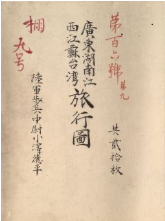 第百六號ノ九
共貳拾枚
廣東湖南江
西江蘇台湾旅行圖
陸軍歩兵中尉小澤徳平
棚九号